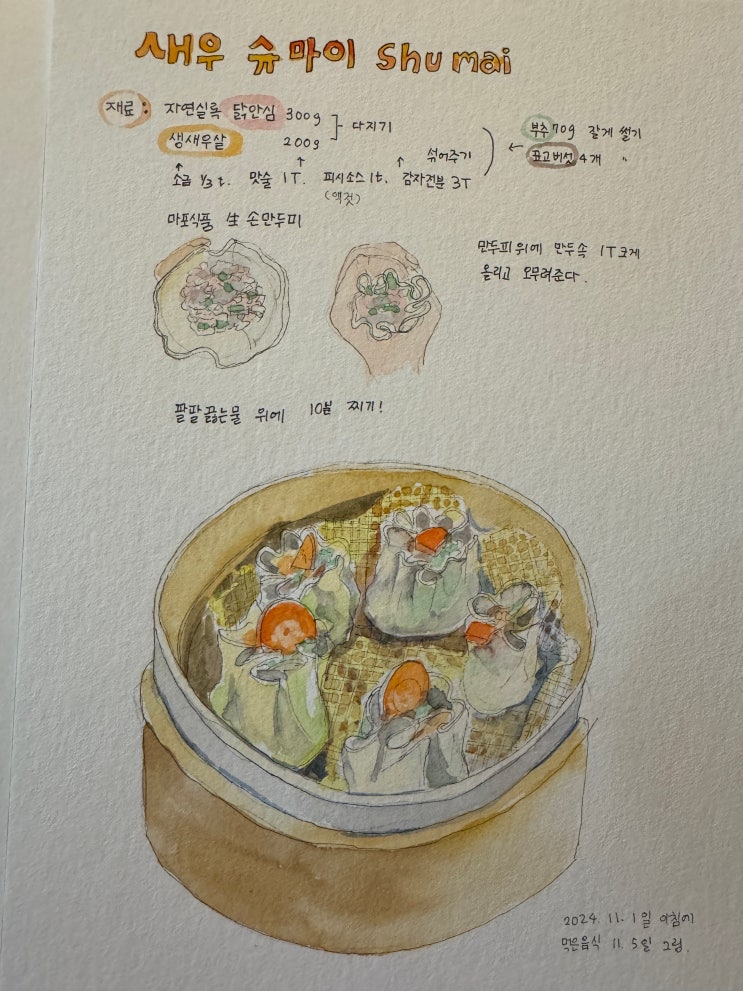 새우 슈마이 shu mai
재료: 자연실록 닭안심 300g ] 다지기
생새우살 200g
부추 70g 잘게 썰기
표고버섯 4개 "
섞어주기
↑ ↑ ↑
소금 1/3 t. 맛술 1T. 피시소스 1t. 감자전분 3T
(액젓)
마포식품 生 손만두피
만두피위에 만두속 1T크게
올리고 오무려준다.
팔팔끓는물 위에 10분 찌기!
2024. 11. 1일 아침에
먹은음식 11. 5일 그림.